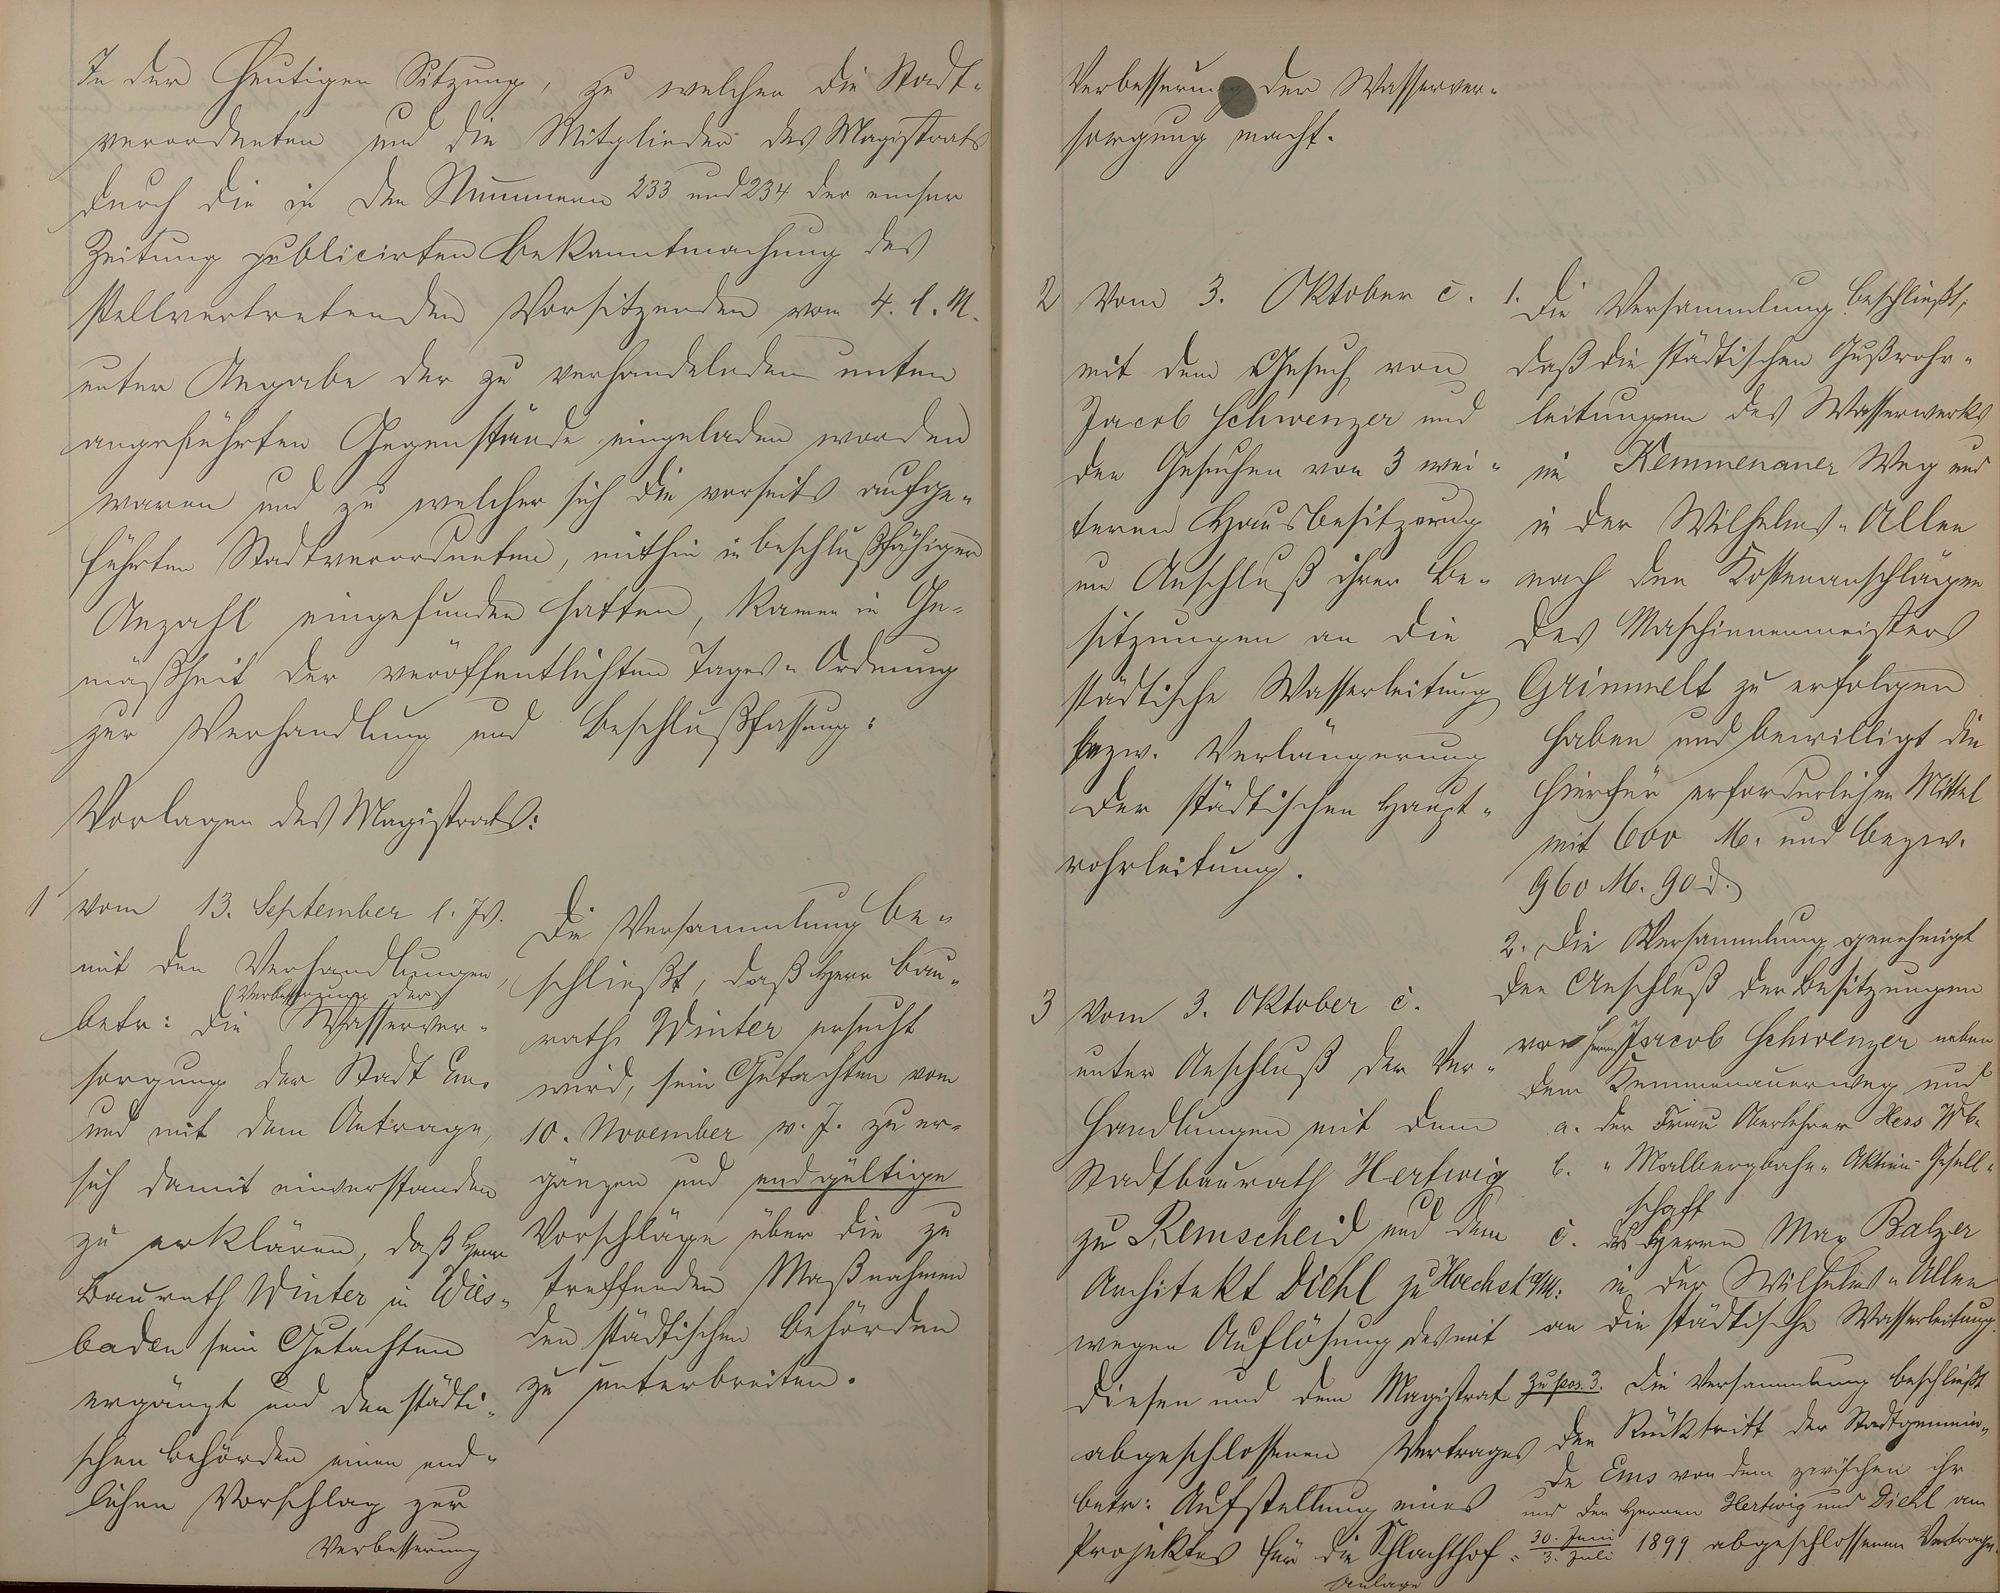 In der heutigen Sitzung, zu welcher die Stadt-
verordneten und die Mitglieder des Magistrats
durch die in den Nummern 233 und 234 der emser
Zeitung publicirten Bekanntmachung des
stellvertretenden Vorsitzenden vom 4. l. M.
unter Angabe der zu verhandelnden unten
angeführten Gegenstände eingeladen worden
waren und zu welcher sich die vorseits aufge-
führten Stadtverordneten, mithin in beschlußfähiger
Anzahl eingefunden hatten, kamen in Ge-
mäßheit der veröffentlichten Tages-Ordnung
zur Verhandlung und Beschlußfassung:
Vorlagen des Magistrats:
1 vom 13. September l. Js.
mit den Verhandlungen,
betr: die (Verbesserung der) Wasserver-
sorgung der Stadt Ems
und mit dem Antrage,
sich damit einverstanden
zu erklären, daß Herr
Baurath Winter in Wies-
baden sein Gutachten
ergänzt und den städti-
schen Behörden einen end-
lichen Vorschlag zur
Verbesserung
Die Versammlung be-
schließt, daß Herr Bau-
rath Winter ersucht
wird, sein Gutachten vom
10. November v. J. zu er-
gänzen und endgültige
Vorschläge über die zu
treffenden Maßnahmen
den städtischen Behörden
zu unterbreiten.
Verbesserung der Wasserver-
sorgung macht.
2 Vom 3. Oktober c.
mit dem Gesuch von
Jacob Schwenzer und
den Gesuchen von 3 wei-
teren Hausbesitzern
um Anschluß ihrer Be-
sitzungen an die
städtische Wasserleitung
bezw. Verlängerung
der städtischen Haupt-
rohrleitung.
1. Die Versammlung beschließt,
daß die städtischen Gußrohr-
leitungen des Wasserwerks
im Kemmenauer Weg und
in der Wilhelms-Allee
nach den Kostenanschlägen
des Maschinenmeisters
Grimmelt zu erfolgen
haben und bewilligt die
hierfür erforderlichen Mittel
mit 600 M. und bezw.
960 M. 90 d.
2. Die Versammlung genehmigt
den Anschluß der Besitzungen
von Herrn Jacob Schwenzer neben
dem Kemmenauerweg und
a. der Frau Oberlehrer Hess Wb.
b. " Malbergbahn-Aktien-Gesell-
schaft
c. des Herrn Max Balzer
in der Wilhelms-Allee
an die städtische Wasserleitung.
3 Vom 3. Oktober c.
unter Anschluß der Ver-
handlungen mit dem
Stadtbaurath Hertwig
zu Remscheid und dem
Architekt Diehl zu Hoechst a/M:
wegen Auflösung des mit
diesen und dem Magistrat
abgeschlossenen Vertrages
betr: Aufstellung eines
Projektes für die Schlachthof-
Anlage
zu pos. 3. Die Versammlung beschließt
den Rücktritt der Stadtgemein-
de Ems von dem zwischen ihr
und den Herren Hertwig und Diehl am
30. Juni / 3. Juli 1899 abgeschlossenen Vertrage.